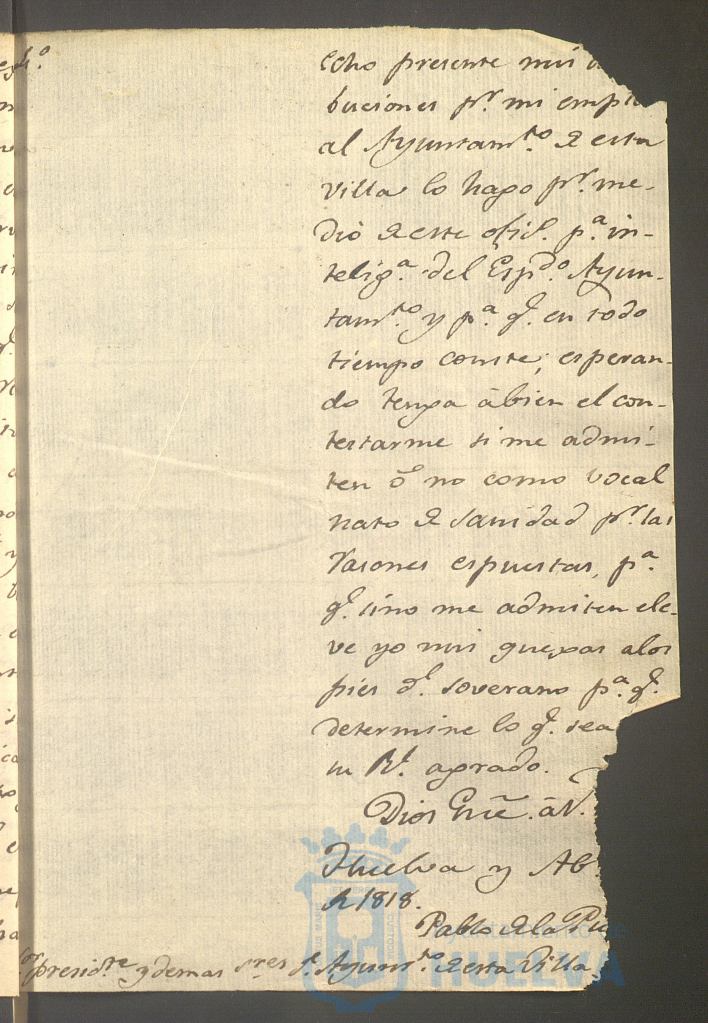 echo presente mis
buciones pr. mi emp
al Ayuntamto. de esta
villa lo hago pr. me-
dio de este ofic. pa. in-
teliga. del Espdo. Ayun-
tamto. y pa. q. en todo
tiempo conste; esperan-
do tenga àbien el con-
testarme si me admi-
ten ô no como vocal
nato de sanidad pr. las
rasones espuestas, pa.
q. sino me admiten ele-
ve yo mis quexas alos
pies dl. soverano pa. q.
determine lo q. sea
su Rl. agrado.
Dios Gue. à V.
Huelva y Ab
de 1818.
Pablo de la Pu
presidte. y demas Sres. dl. Ayunto. de esta Villa
HUELVA